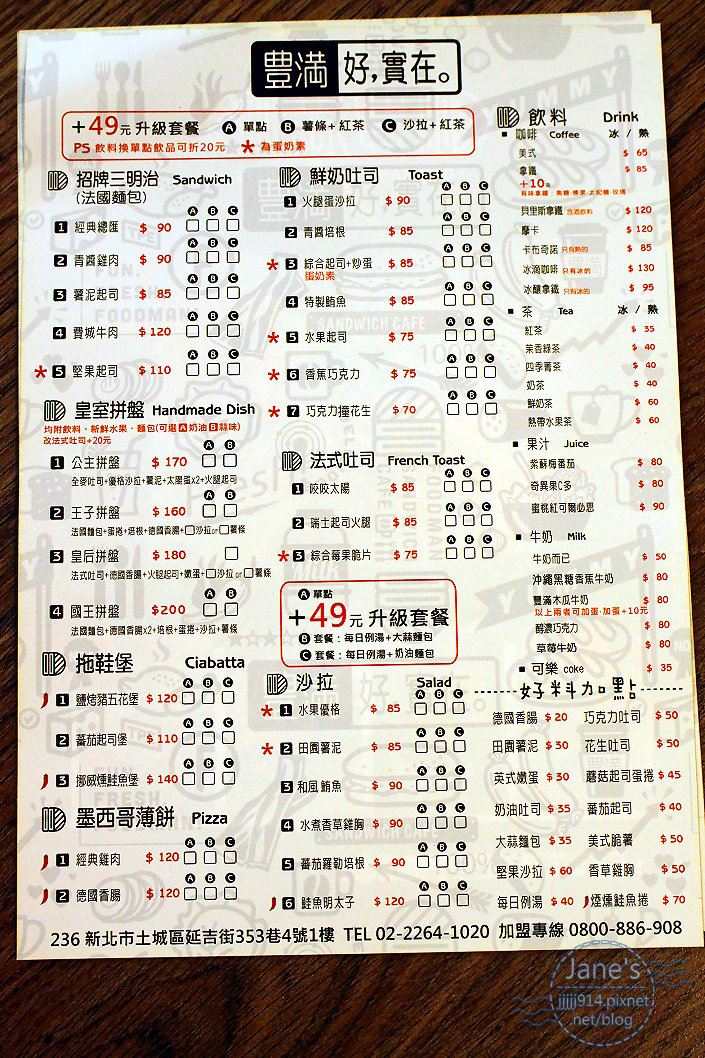 豐滿 好,實在。
+49元 升級套餐 A 單點 B 薯條+紅茶 C 沙拉+紅茶
PS 飲料換單點飲品可折20元 * 為蛋奶素
招牌三明治 Sandwich
(法國麵包)
A B C
1 經典總匯 $ 90
A B C
2 青醬雞肉 $ 90
A B C
3 薯泥起司 $ 85
A B C
4 費城牛肉 $ 120
A B C
* 5 堅果起司 $ 110
皇室拼盤 Handmade Dish
均附飲料、新鮮水果、麵包(可選A奶油B蒜味)
改法式吐司+20元
A B
1 公主拼盤 $ 170
全麥吐司+優格沙拉+薯泥+太陽蛋x2+火腿起司
A B
2 王子拼盤 $ 160
法國麵包+蛋捲+培根+德國香腸+□沙拉or□薯條
3 皇后拼盤 $ 180
法式吐司+德國香腸+火腿起司+嫩蛋+□沙拉or□薯條
A B
4 國王拼盤 $200
法國麵包+德國香腸x2+培根+蛋捲+沙拉+薯條
拖鞋堡 Ciabatta
A B C
1 鹽焙豬五花堡 $ 120
A B C
2 蕃茄起司堡 $ 110
A B C
3 挪威燻鮭魚堡 $ 140
墨西哥薄餅 Pizza
A B C
1 經典雞肉 $ 120
A B C
2 德國香腸 $ 120
鮮奶吐司 Toast
A B C
1 火腿蛋沙拉 $ 90
A B C
2 青醬培根 $ 85
A B C
* 3 綜合起司+炒蛋 $ 85
蛋奶素
A B C
4 特製鮪魚 $ 85
A B C
* 5 水果起司 $ 75
A B C
* 6 香蕉巧克力 $ 75
A B C
* 7 巧克力撞花生 $ 70
法式吐司 French Toast
A B C
1 咬咬太陽 $ 85
A B C
2 瑞士起司火腿 $ 85
A B C
* 3 綜合莓果脆片 $ 75
A 單點
+49元 升級套餐
B 套餐：每日例湯+大蒜麵包
C 套餐：每日例湯+奶油麵包
沙拉 Salad
A B C
* 1 水果優格 $ 85
A B C
* 2 田園薯泥 $ 85
A B C
3 和風鮪魚 $ 90
A B C
4 水煮香草雞胸 $ 90
A B C
5 蕃茄羅勒培根 $ 90
A B C
6 鮭魚明太子 $ 120
飲料 Drink
咖啡 Coffee 冰 / 熱
美式 $ 65
拿鐵 $ 85
+10元
有味拿鐵：焦糖·榛果·太妃糖·玫瑰
貝里斯拿鐵 含酒飲料 $ 120
摩卡 $ 120
卡布奇諾 只有熱的 $ 85
冰滴咖啡 只有冰的 $ 130
冰釀拿鐵 只有冰的 $ 95
茶 Tea 冰 / 熱
紅茶 $ 35
茉香綠茶 $ 40
四季菁茶 $ 40
奶茶 $ 40
鮮奶茶 $ 60
熱帶水果茶 $ 60
果汁 Juice
紫蘇梅番茄 $ 80
奇異果C多 $ 80
蜜桃紅可爾必思 $ 90
牛奶 Milk
牛奶而已 $ 50
沖繩黑糖香蕉牛奶 $ 80
豐滿木瓜牛奶 $ 80
以上兩者可加蛋·加蛋+10元
醇濃巧克力 $ 80
草莓牛奶 $ 80
可樂 coke $ 35
好料加點
德國香腸 $ 20 巧克力吐司 $ 50
田園薯泥 $ 30 花生吐司 $ 50
英式嫩蛋 $ 30 蘑菇起司蛋捲 $ 45
奶油吐司 $ 35 蕃茄起司 $ 40
大蒜麵包 $ 35 美式脆薯 $ 50
堅果沙拉 $ 60 香草雞胸 $ 50
每日例湯 $ 40 煙燻鮭魚捲 $ 70
236 新北市土城區延吉街353巷4號1樓 TEL 02-2264-1020 加盟專線 0800-886-908
Jane's
jjjjj914.pixnet
.net/blog